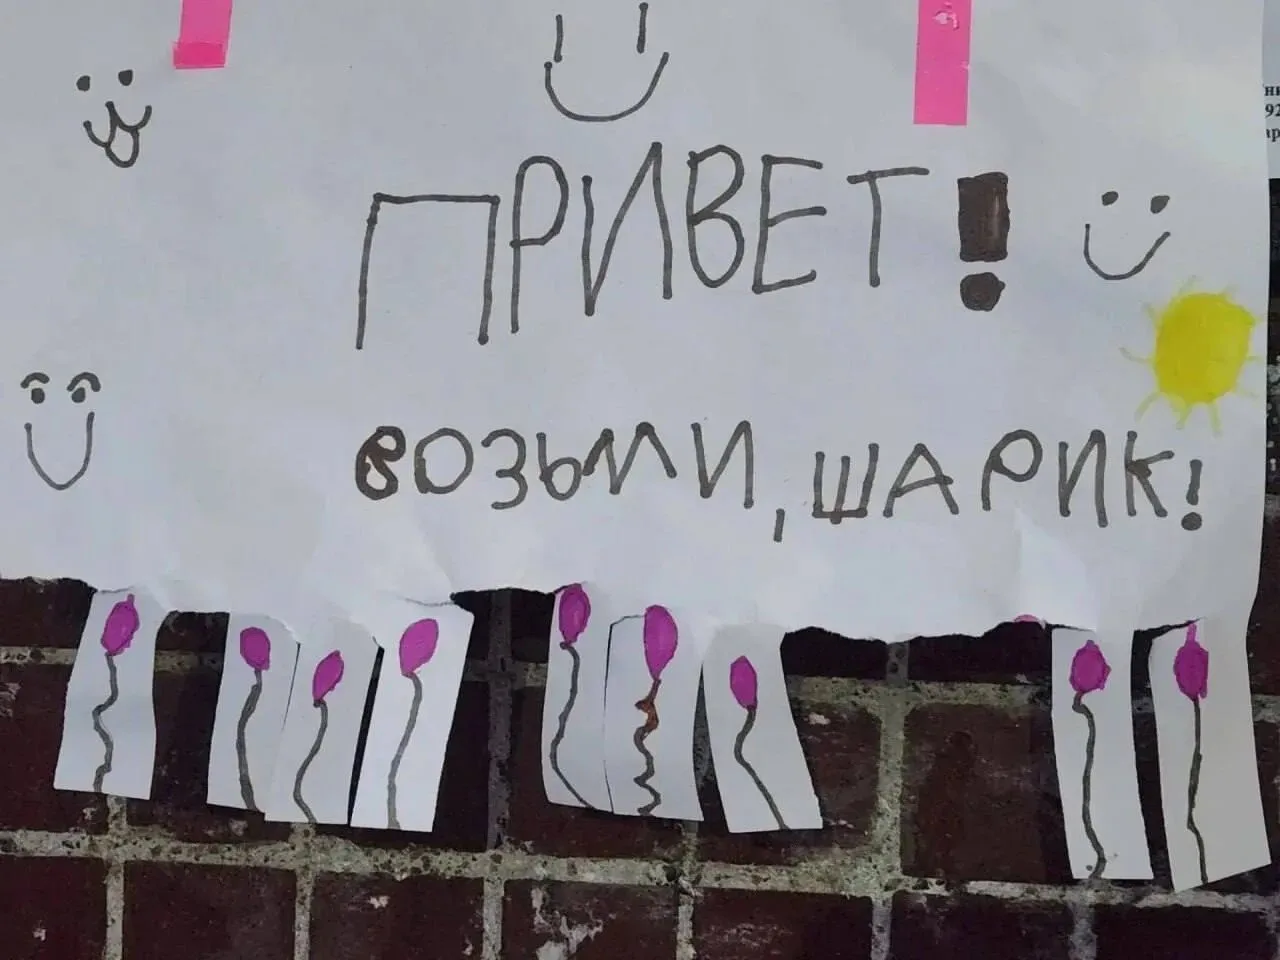 ПРИВЕТ!
ВОЗЬМИ, ШАРИК!